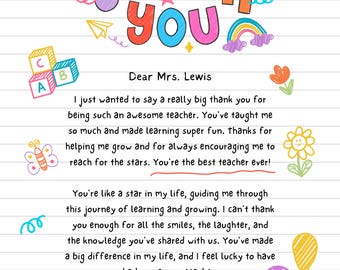 YOU
Dear Mrs. Lewis
I just wanted to say a really big thank you for
being such an awesome teacher. You've taught me
so much and made learning super fun. Thanks for
helping me grow and for always encouraging me to
reach for the stars. You're the best teacher ever!
You're like a star in my life, guiding me through
this journey of learning and growing. I can't thank
you enough for all the smiles, the laughter, and
the knowledge you've shared with us. You've made
a big difference in my life, and I feel lucky to have